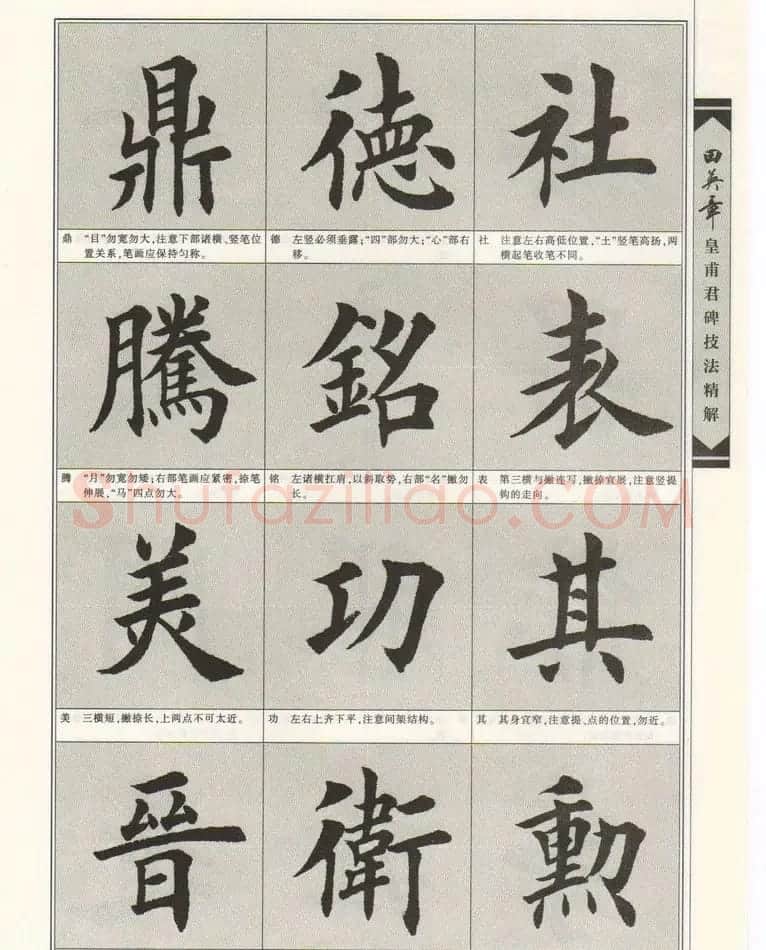 鼎 德 社
鼎 “目”勿宽勿大,注意下部诸横、竖笔位
置关系,笔画应保持匀称。
德 左竖必须垂露;“四”部勿大;“心”部右
移。
社 注意左右高低位置,“土”竖笔高扬,两
横起笔收笔不同。
騰 銘 表
腾 “月”勿宽勿矮;右部笔画应紧密,捺笔
伸展,“马”四点勿大。
铭 左诸横扛肩,以斜取势,右部“名”撇勿
长。
表 第三横与撇连写,撇捺宜展,注意竖提
钩的走向。
美 功 其
美 三横短,撇捺长,上两点不可太近。
功 左右上齐下平,注意间架结构。
其 其身宜窄,注意提、点的位置,勿近。
晉 衛 勲
田英章
皇甫君碑技法精解
Shufaziliao.COM